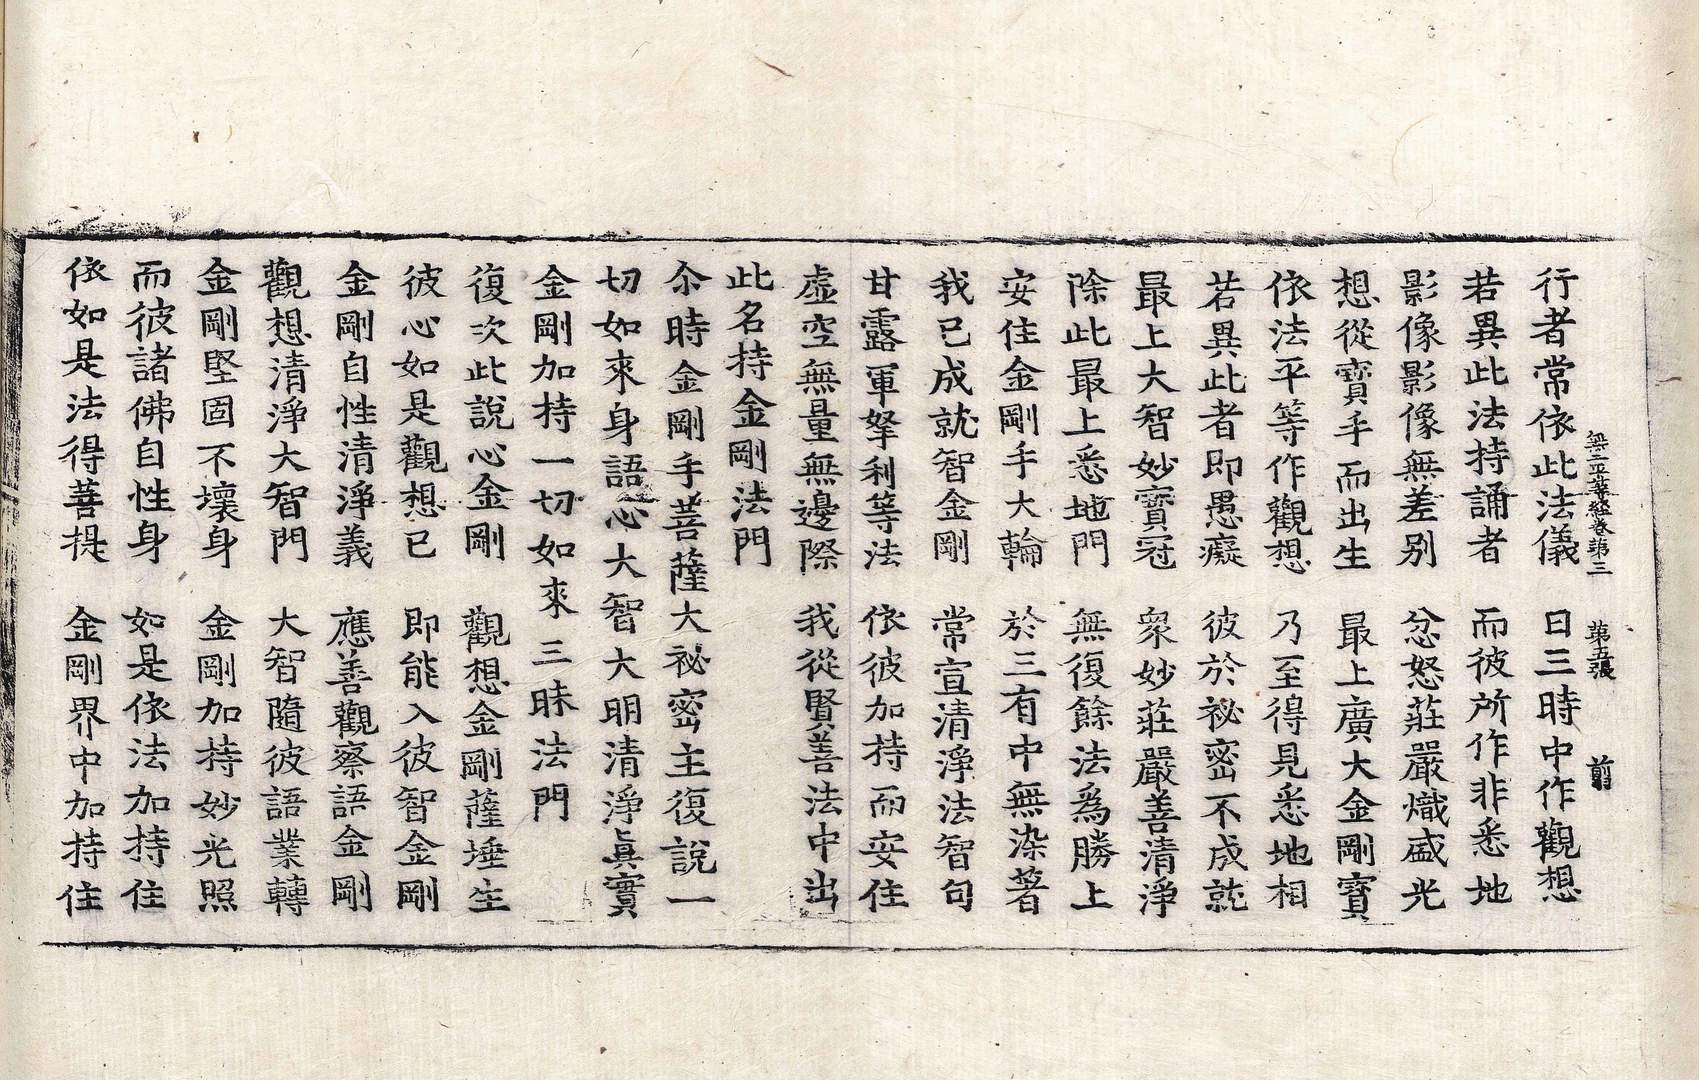 無二平等經卷第三 第五張 前
行者常依此法儀 日三時中作觀想
若異此法持誦者 而彼所作非悉地
影像影像無差别 忿怒莊嚴熾盛光
想從寶手而出生 最上廣大金剛寶
依法平等作觀想 乃至得見悉地相
若異此者即愚癡 彼於祕密不成就
最上大智妙寶冠 衆妙莊嚴善清淨
除此最上悉地門 無復餘法爲勝上
安住金剛手大輪 於三有中無染著
我已成就智金剛 常宣清淨法智句
甘露軍拏利等法 依彼加持而安住
虛空無量無邊際 我從賢善法中出
此名持金剛法門
尒時金剛手菩薩大祕密主復說一
切如來身語心大智大明清淨眞實
金剛加持一切如來三昧法門
復次此說心金剛 觀想金剛薩埵生
彼心如是觀想已 即能入彼智金剛
金剛自性清淨義 應善觀察語金剛
觀想清淨大智門 大智隨彼語業轉
金剛堅固不壞身 金剛加持妙光照
而彼諸佛自性身 如是依法加持住
依如是法得菩提 金剛界中加持住